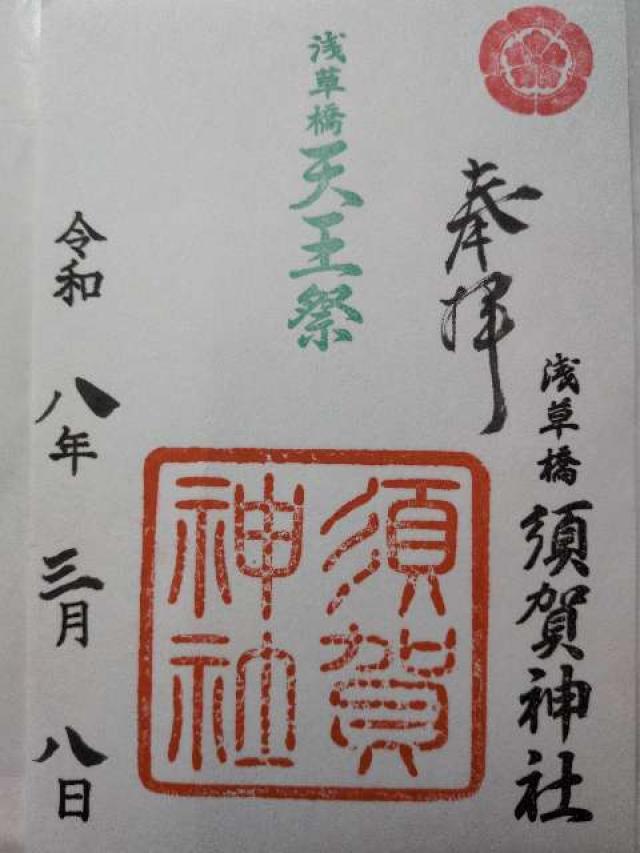 奉拝
浅草橋 須賀神社
浅草橋 天王祭
須賀
神社
令和 八年 三月 八日